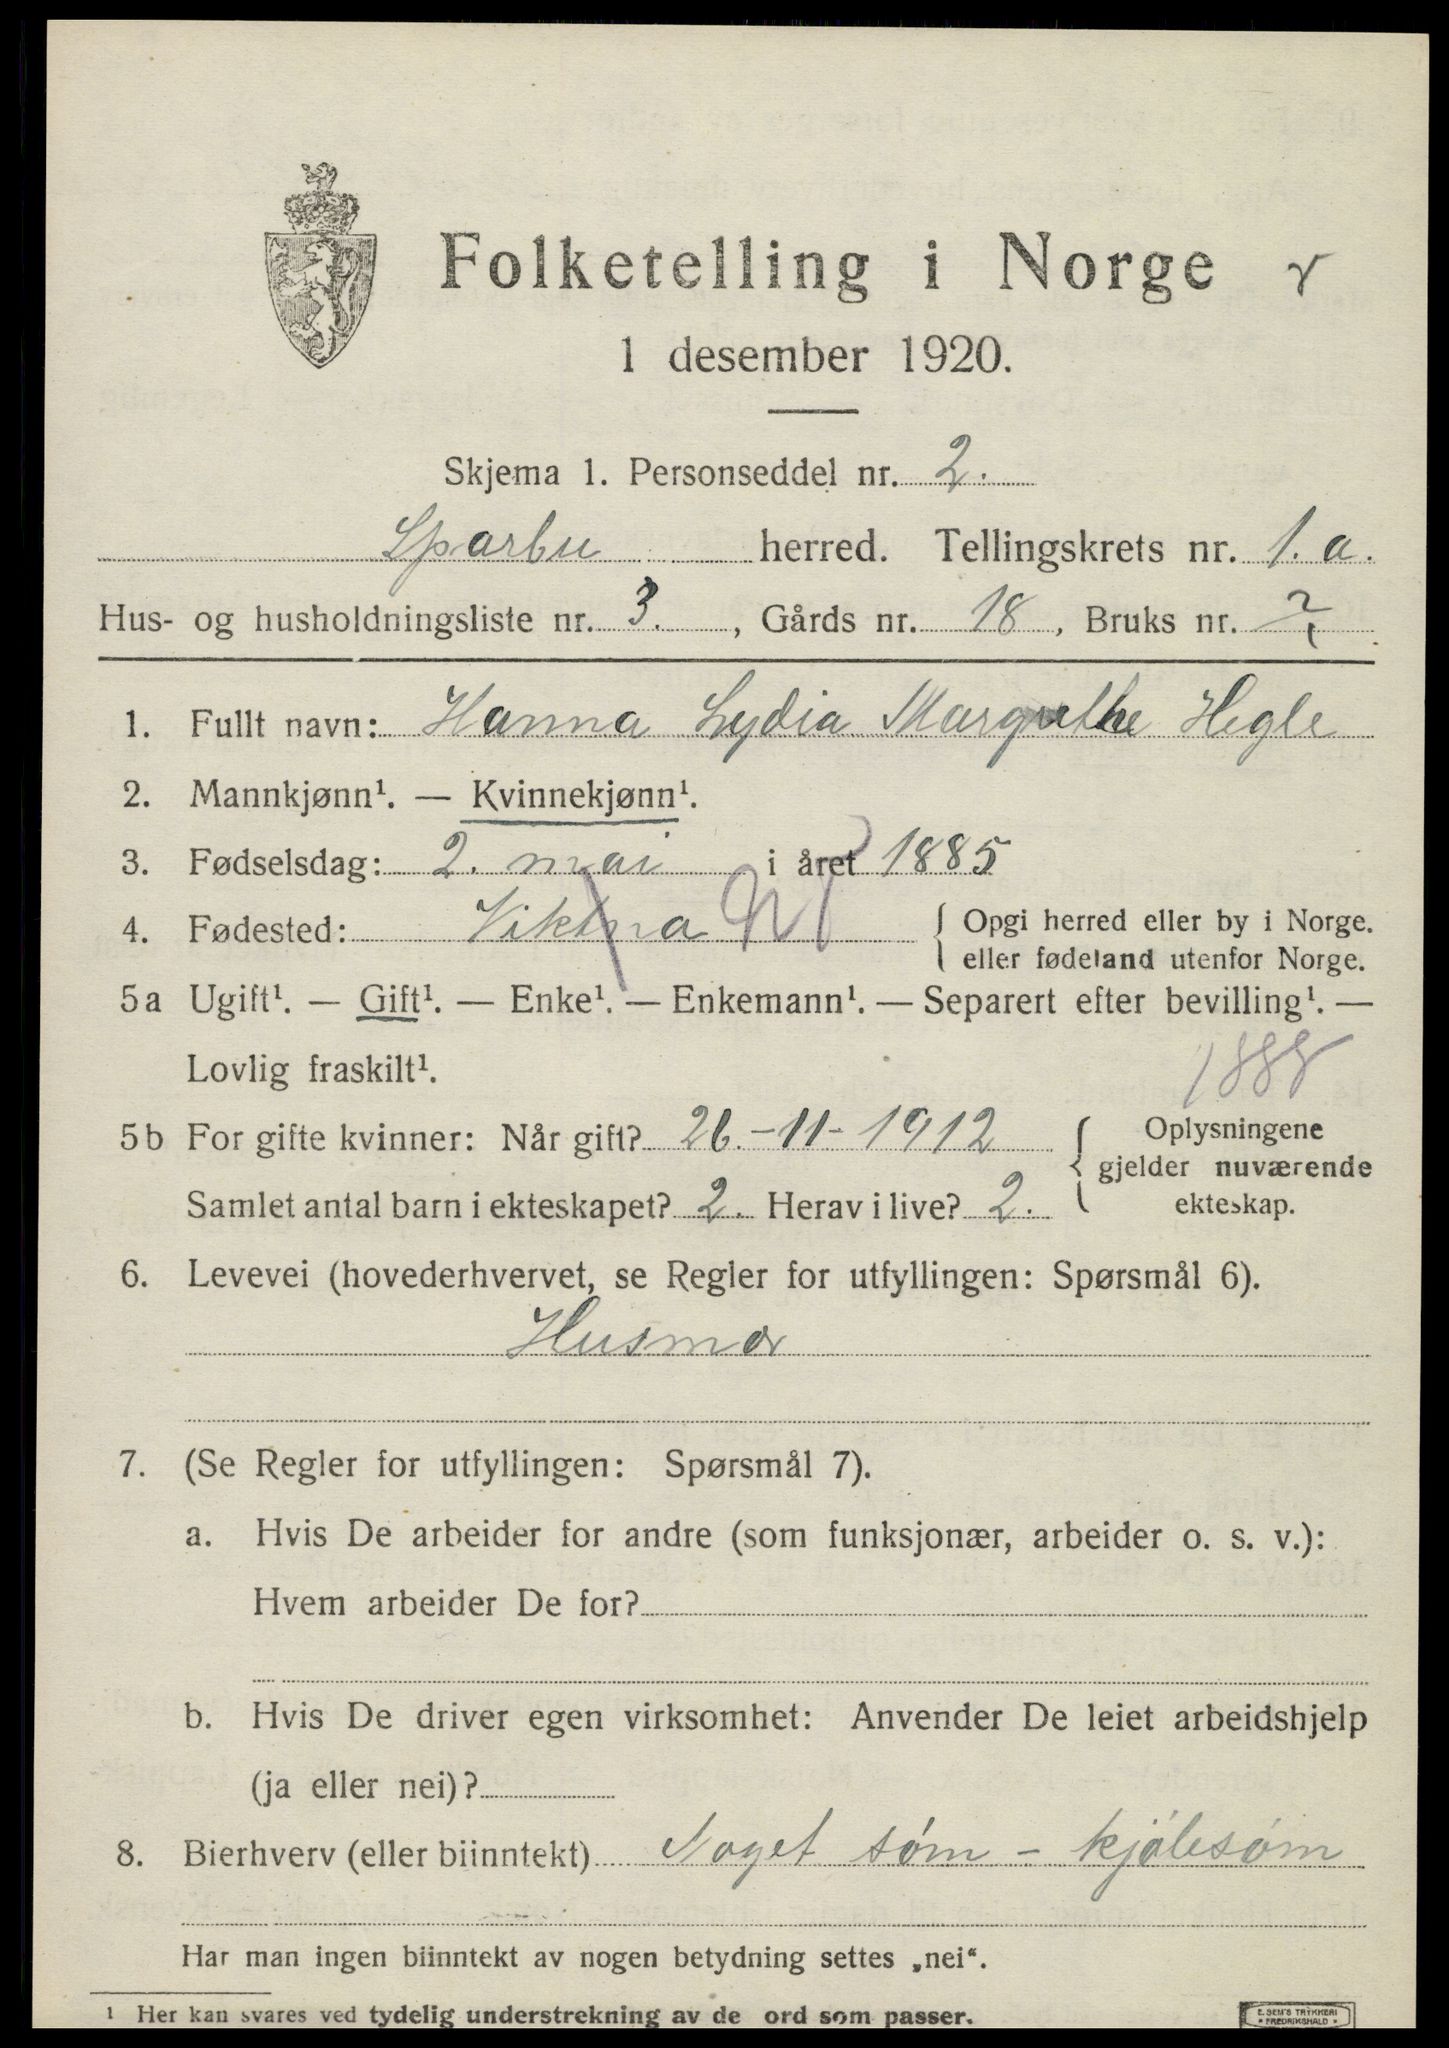 Folketelling i Norge
1 desember 1920.
Skjema 1. Personseddel nr. 2.
Sparbu herred. Tellingskrets nr. 1. a.
Hus- og husholdningsliste nr. 3. , Gårds nr. 18 , Bruks nr.
1. Fullt navn: Hanna Lydia Margrethe Hegle
2. Mannkjønn¹. — Kvinnekjønn¹.
3. Fødselsdag: 2. mai i året 1885
4. Fødested: Viktna { Opgi herred eller by i Norge.
eller fødeland utenfor Norge.
5 a Ugift¹. — Gift¹. — Enke¹. — Enkemann¹. — Separert efter bevilling¹. —
Lovlig fraskilt¹.
1888
5 b For gifte kvinner: Når gift? 26.-11-1912 { Oplysningene
gjelder nuværende
Samlet antal barn i ekteskapet? 2. Herav i live? 2. ekteskap.
6. Levevei (hovederhvervet, se Regler for utfyllingen: Spørsmål 6).
Husmor
7. (Se Regler for utfyllingen: Spørsmål 7).
a. Hvis De arbeider for andre (som funksjonær, arbeider o. s. v.):
Hvem arbeider De for?
b. Hvis De driver egen virksomhet: Anvender De leiet arbeidshjelp
(ja eller nei)?
8. Bierhverv (eller biinntekt) Noget søm - kjolesøm
Har man ingen biinntekt av nogen betydning settes „nei“.
¹ Her kan svares ved tydelig understrekning av de ord som passer.
E. SEM'S TRYKKERI
* FREDRIKSHALD *